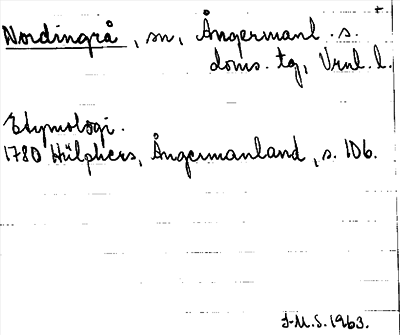 Nordingrå, sn, Ångermanl. s.
doms. tg, Vrnl. l.
Etymologi.
1780 Hülphers, Ångermanland, s. 106.
J-M.S. 1963.